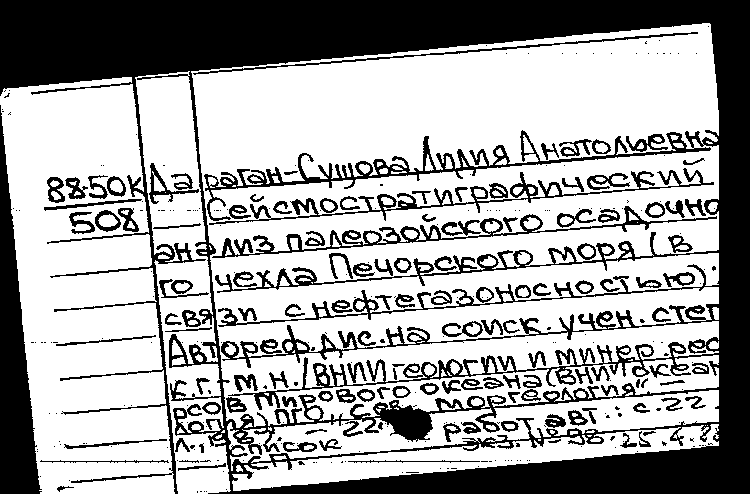 88-50К Дараган-Сущова, Лидия Анатольевна
508 Сейсмостратиграфический
анализ палеозойского осадочно
го чехла Печорского моря (в
связи с нефтегазоносностью):
Автореф. дис. на соиск. учен. степ
к.г.-м.н. / ВНИИ геологии и минер. рес
рсов Мирового океана (ВНИИокеан
логия), ПГО "Сев моргеология". —
Л., - 22 работ авт.: с. 22.
список экз. № 98. 25.4.88
ДСП.